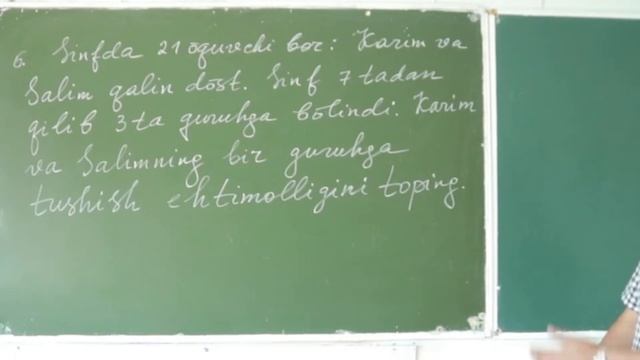 6. Sinfda 21 o̅quvchi bor: Karim va
Salim qalin do̅st. Sinf 7 tadan
qilib 3 ta guruhga bo̅lindi. Karim
va Salimning bir guruhga
tushish ehtimolligini toping.